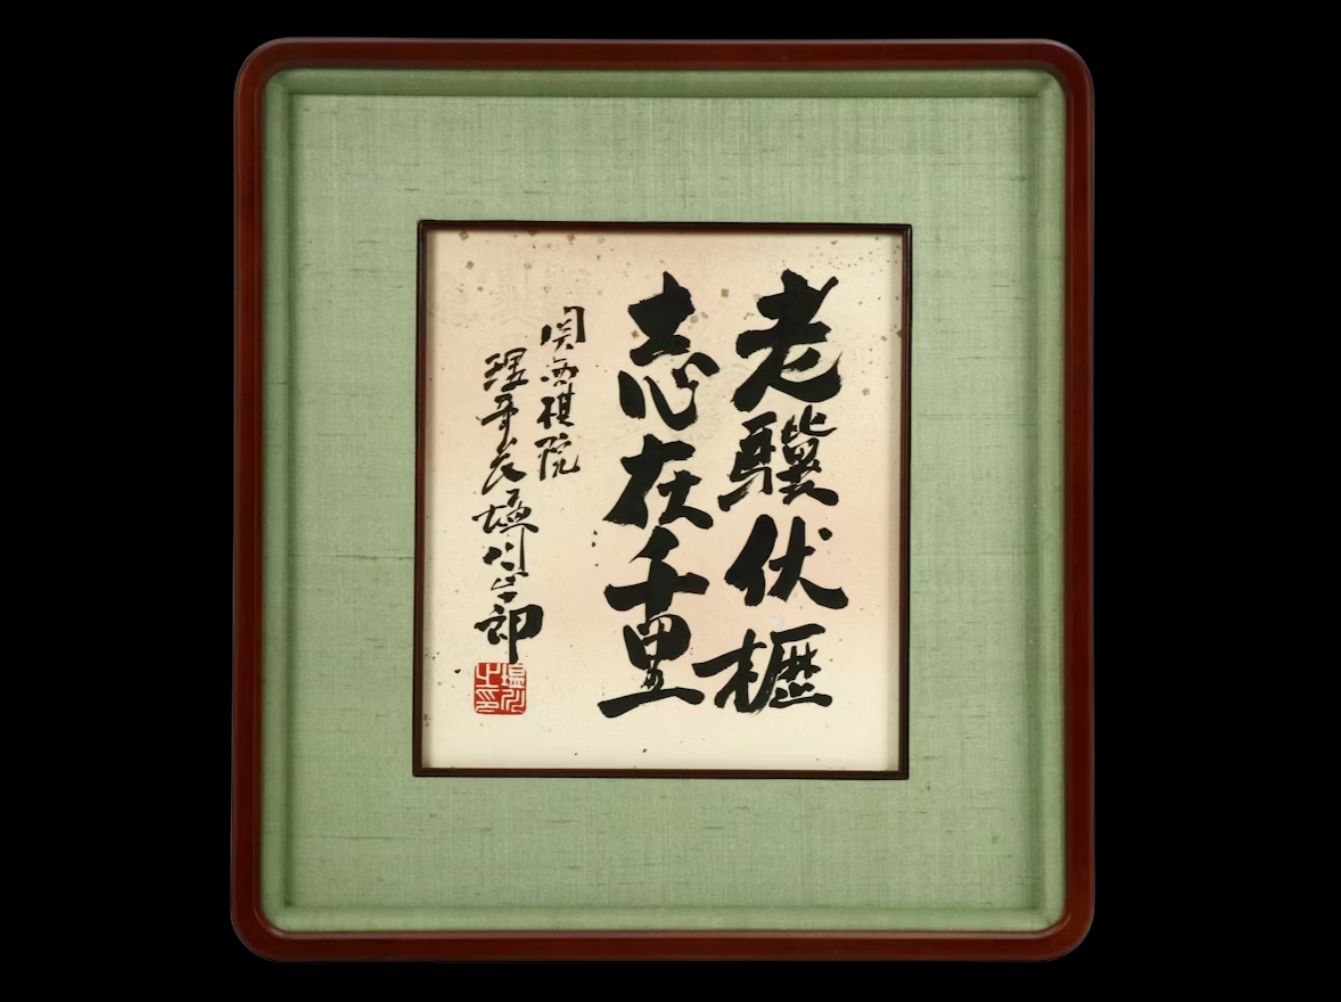 老驥伏櫪
志在千里
関西棋院
理事長塩川正十郎
塩川之印